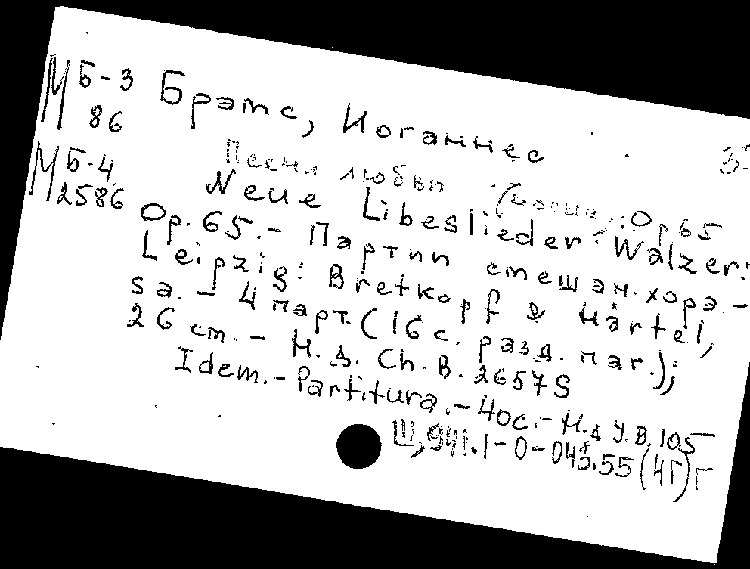 М Б-3 86 Брамс, Иоганнес
М Б-4 2586 Песни любви Ор 65
Neue Libeslieder. Walzer:
Op. 65.- Партии смешан. хора.-
Leipzig: Bretkopf & Härtel,
s a. - 4 парт. (16 с. разд. паг.);
26 cm. - Н. д. Ch. B. 2657 S
Idem.- Partitura.- 40с.- Н. д У. В. 105
Щ,941.1-0-045.55 (4Г) Г